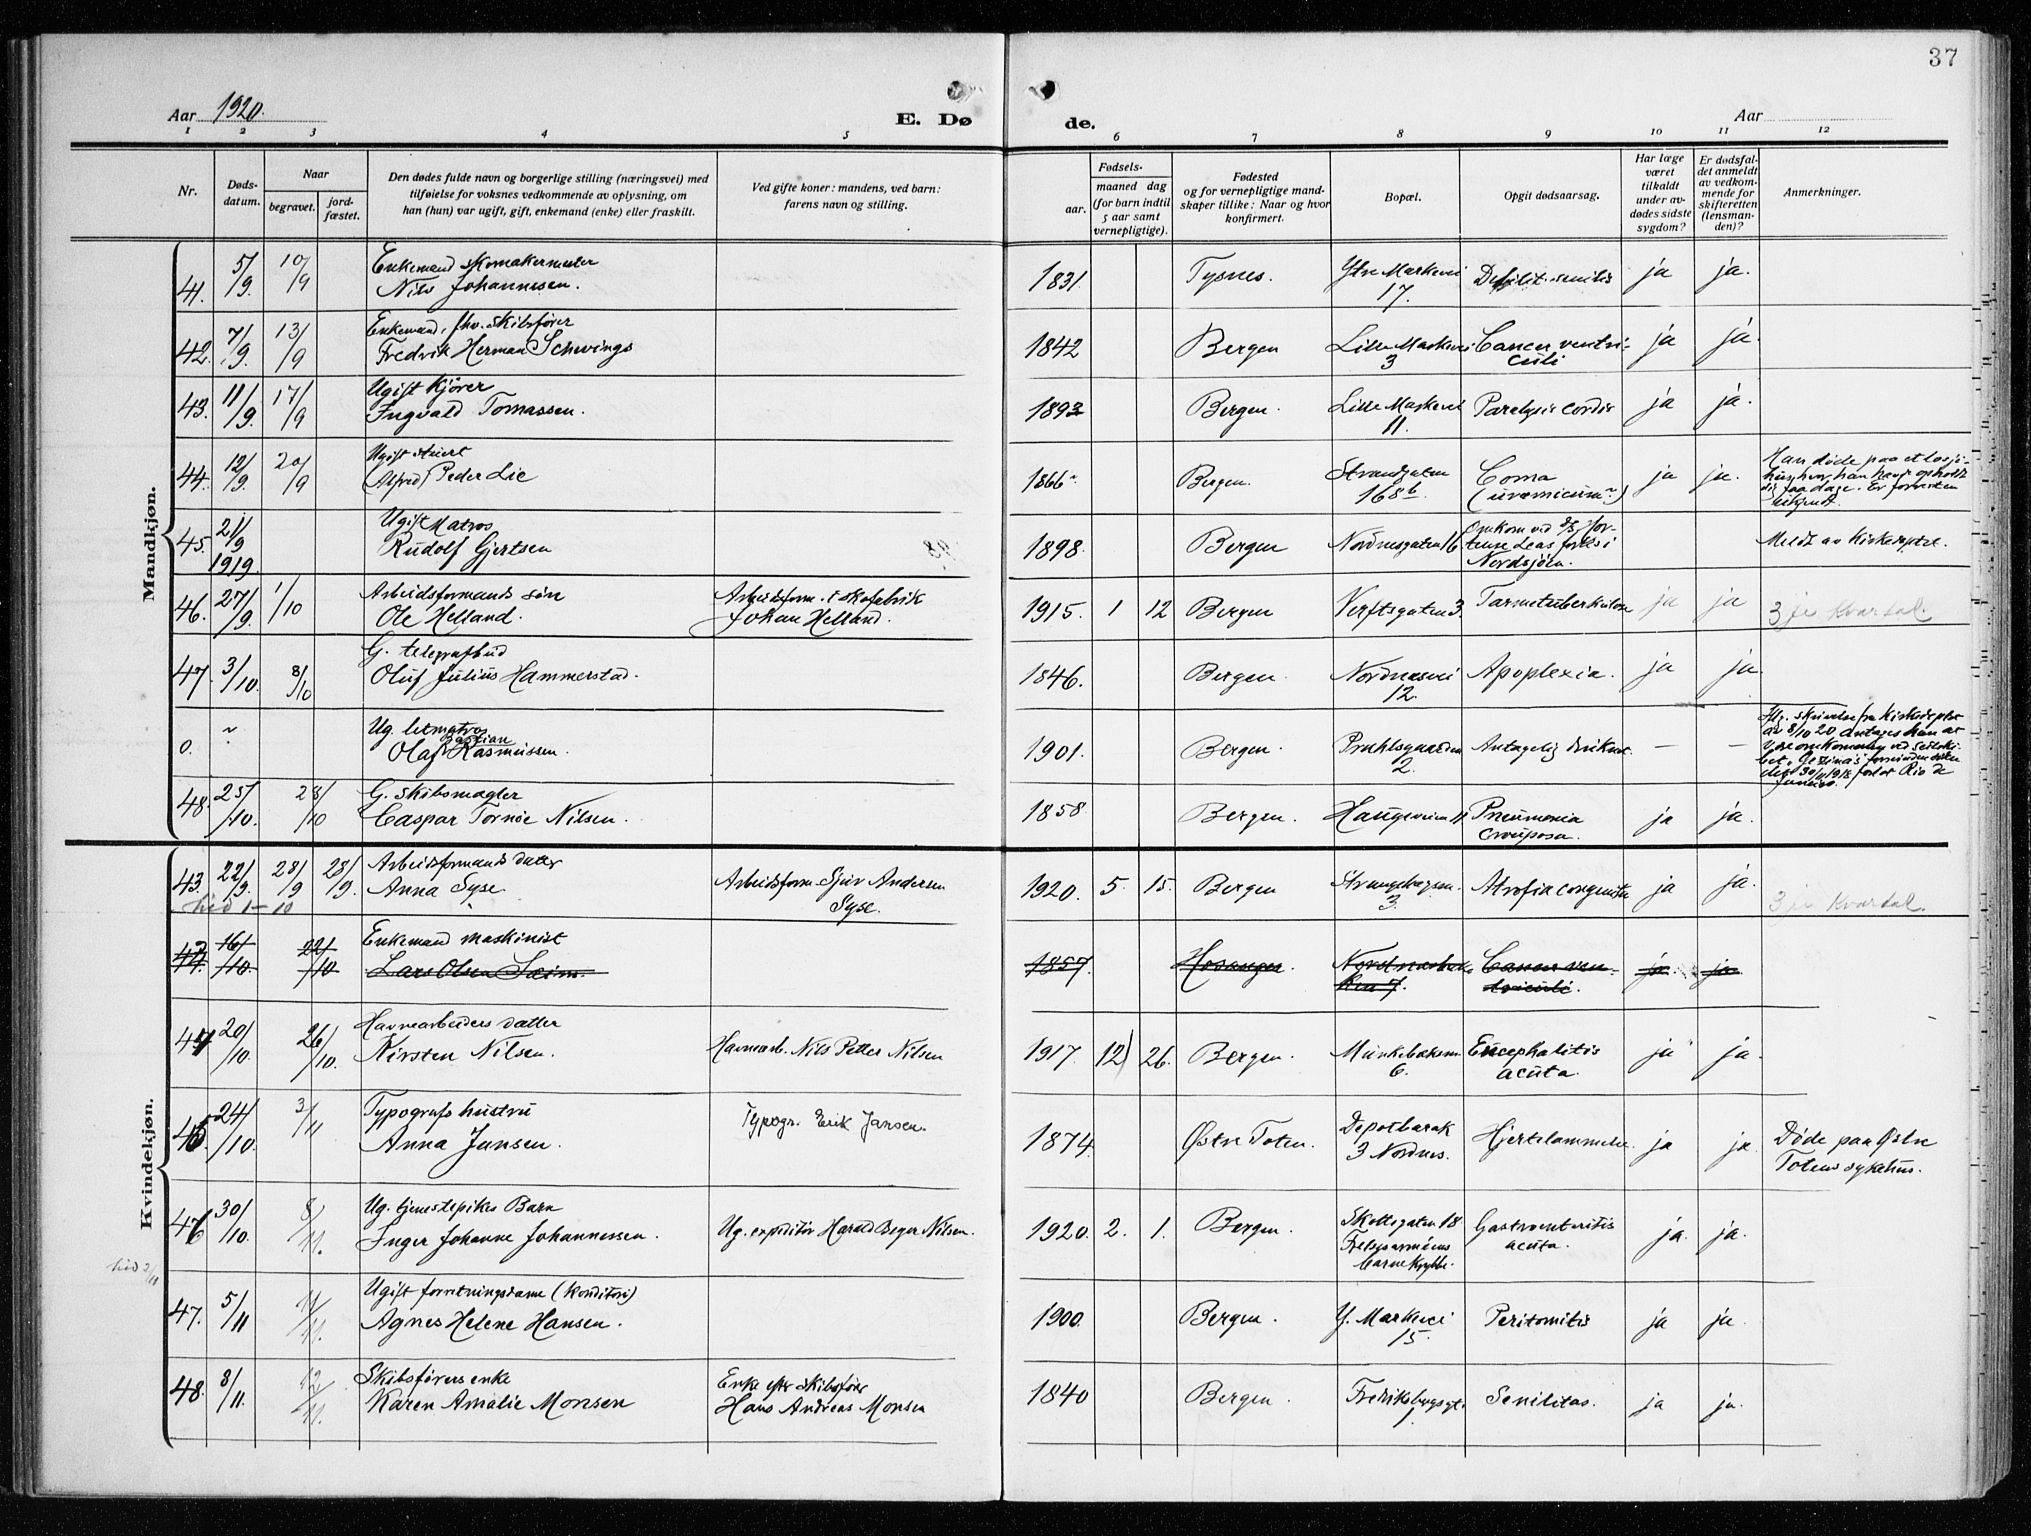 37
Aar 1920.
E. Dø de.
Aar
1 2 3 4 5 6 7 8 9 10 11 12
Nr.
Døds-
datum.
Naar
begravet.
jord-
fæstet.
Den dødes fulde navn og borgerlige stilling (næringsvei) med
tilføielse for voksnes vedkommende av oplysning, om
han (hun) var ugift, gift, enkemand (enke) eller fraskilt.
Ved gifte koner: mandens, ved barn:
farens navn og stilling.
Fødsels-
aar.
maaned dag
(for barn indtil
5 aar samt
vernepligtige).
Fødested
og for vernepligtige mand-
skaper tillike: Naar og hvor
konfirmert.
Bopæl.
Opgit dødsaarsag.
Har læge
været
tilkaldt
under av-
dødes sidste
sygdom?
Er dødsfal-
det anmeldt
av vedkom-
mende for
skifteretten
(lensman-
den)?
Anmerkninger.
Mandkjøn.
41. 5/9. 10/9
Enkemand skomakermester
Nils Johannesen.
1831. Tysnes. Ytre Markevei
17.
Debilit. senilis ja ja.
42. 7/9. 13/9
Enkemand, fhv. skibsfører
Fredrik Herman Schwings
1842 Bergen Lille Markevei
3
Cancer ventri-
culi
ja ja.
43. 11/9. 17/9
Ugift kjører
Ingvald Tomassen.
1893 Bergen. Lille Markevei
11.
Paralysis cordis ja ja.
44. 12/9. 20/9
Ugift stuert
(Alfred) Peder Lie
1866 Bergen. Strandgaten
168b.
Coma
(uræmicum?)
ja ja.
Han døde paa et losji-
hus, hvor han havde opholdt
sig faa dage. Er forresten
ukjendt.
45. 21/9
1919
Ugift Matros
Rudolf Gjertsen
1898. Bergen Nordnesgaten 16
Omkom ved d/s for-
tune Leas forlis i
Nordsjøen.
Meldt av Kirkedeptet.
46. 27/9. 1/10
Arbeidsformands søn
Ole Helland.
Arbeidsform. i skofabrik
Johan Helland.
1915. 1 12 Bergen Verftsgaten 3. Tarmtuberkulose ja ja 3je Kvartal.
47. 3/10. 8/10
G. telegrafbud
Oluf Julius Hammerstad.
1846. Bergen. Nordnesvei
12.
Apoplexia. ja ja
0. ~
Ug. letmatros
Bastian
Olaf Rasmussen.
1901. Bergen. Prahlsgaarden
2.
Antagelig druknet — —
Ifg. skrivelse fra Kirkedeptet
av 8/10 20 antages han at
være omkommet ved seilski-
bet "Gezina's" forsvinden siden
den 30/11 1918 forlot Rio de
Janeiro.
48. 25/10. 28/10
G. skibsmægler
Caspar Tornöe Nilsen.
1858 Bergen. Haugeveien 11
Pneumonia
crouposa.
ja ja.
Kvindekjøn.
43. 22/9. 28/9 28/9.
Arbeidsformands datter
Anna Syse.
Arbeidsform. Sjur Andersen
Syse.
1920. 5. 15. Bergen Strangebakken.
3.
Atrofia congenita ja ja. 3je Kvartal.
hid 1-10
44. 16/10. 22/10
Enkemand maskinist
Lars Olsen Sæim.
1857. Hosanger. Nordnesbak-
ken 7.
Cancer ven-
triculi.
ja ja
44 20/10. 26/10.
Havnearbeiders datter
Kirsten Nilsen.
Havnearb. Nils Petter Nilsen
1917. 12) 26. Bergen. Munkebakken
6.
Encephalitis
acuta.
ja ja.
45 24/10. 3/11
Typografs hustru
Anna Jansen.
Typogr. Erik Jansen.
1874. Østre Toten. Depotbarak
3 Nordnes.
Hjertelammelse ja ja.
Døde paa Østre
Totens sykehus.
46 30/10. 8/11.
Ug. tjenestepikes Barn
Inger Johanne Johannessen.
Ug. expeditør Harald Beyer Nilsen.
1920. 2. 1. Bergen. Skottegaten 18
Frelsesarméens
barnekrybbe.
Gastroenteritis
acuta.
ja. ja.
hid 2/11
47. 5/11 11/11.
Ugift forretningsdame (Konditori)
Agnes Helene Hansen.
1900. Bergen. Y. Markevei
15.
Peritonitis ja ja
48. 8/11. 12/11.
Skibsførers enke
Karen Amalie Monsen
Enke efter skibsfører
Hans Andreas Monsen
1840 Bergen. Fredriksbergsgt.
1.
Senilitas. ja ja.